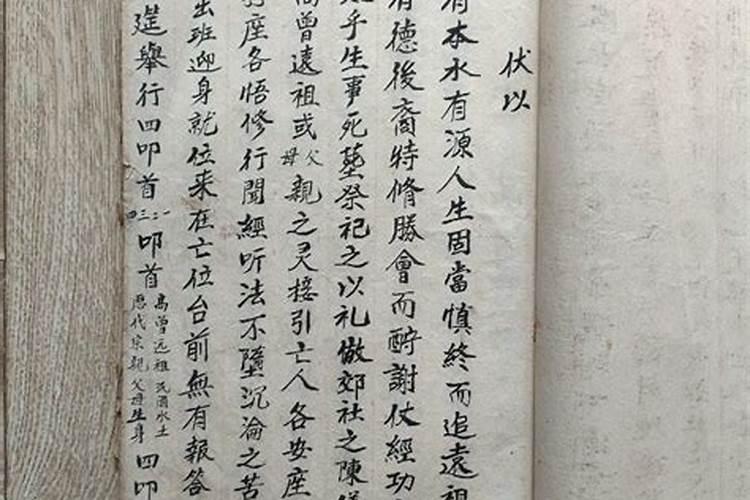 伏以
有本水有源人生固當慎終而追遠祖
有德後裔特脩勝會而酧謝仗經功
於乎生事死塟祭祀之以礼倣郊社之陳
高曾遠祖或父母親之灵接引亡人各安座
座各悟修行聞經听法不墮沉淪之苦
出班迎身就位来在亡位台前無有報答
筵舉行四叩首一二三四叩首高曾远祖氏酒水土历代宗親父母生身四叩